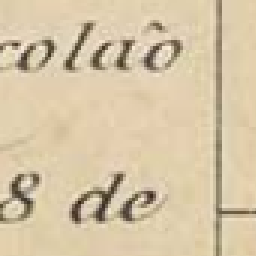 colaô
8 de